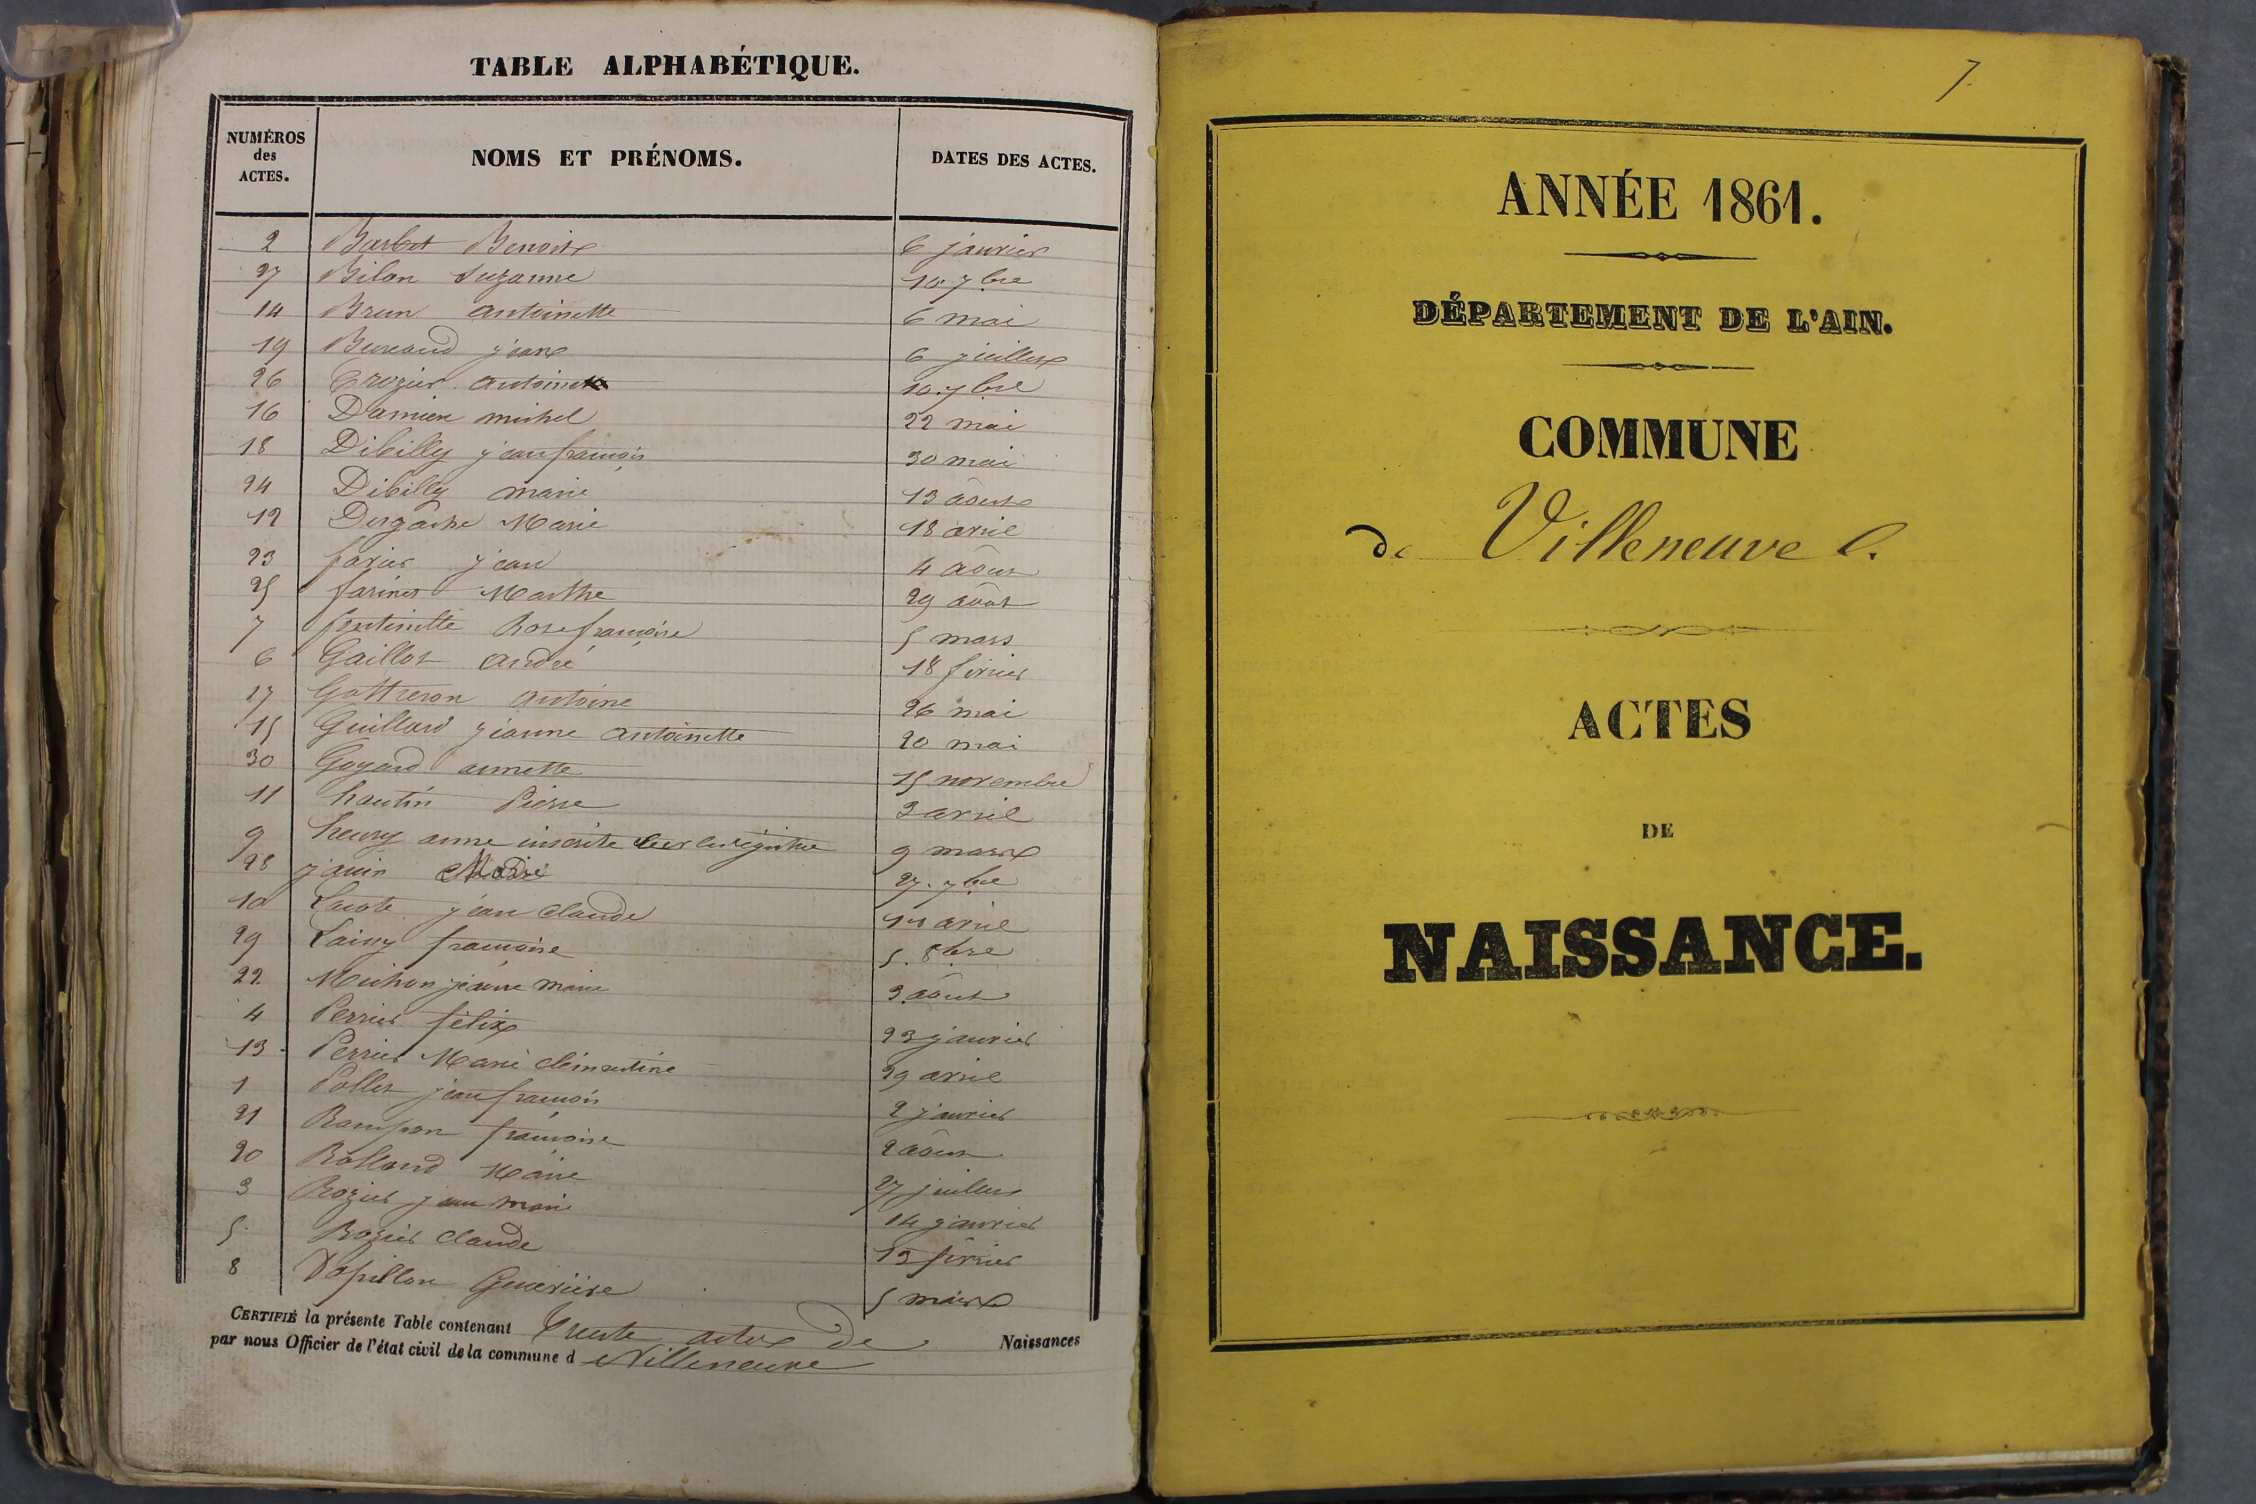 TABLE ALPHABÉTIQUE.
NUMÉROS des ACTES. NOMS ET PRÉNOMS. DATES DES ACTES.
2 Barbet Benoit 6 janvier
27 Bilon Suzanne 10. 7bre
14 Brun antoinette 6 mai
19 Bureaud jean 6 juillet
26 Crozier antoinette 10. 7bre
16 Damien michel 22 mai
18 Dibilly jean françois 30 mai
24 Dibilly marie 13 août
12 Dugache Marie 18 avril
23 farier jean 4 août
25 farines Marthe 29 août
7 fontinette Rose françoise 5 mars
6 Gaillot andré 18 février
17 Gottreron antoine 26 mai
15 Guillard jeanne antoinette 20 mai
30 Goyard annette 15 novembre
11 hautin Pierre 3 avril
9 heury anne inscrite sur le régistre 9 mars
28 janin Marie 27. 7bre
10 Lacote jean claude 1er avril
29 Lainy françoise 5. 8bre
22 Michon jeanne marie 3 août
4 Perrier félix 23 janvier
13 Perrier Marie clémentine 29 avril
1 Pollet jean françois 2 janvier
21 Rampon françoise 2 août
20 Rolland Marie 27 juillet
3 Rozier jean marie 14 janvier
5 Rozier claude 13 février
8 Vapillon Guerrière 5 mars
CERTIFIÉ la présente Table contenant Trente actes de Naissances
par nous Officier de l'état civil de la commune d Villeneuve
7.
ANNÉE 1861.
DÉPARTEMENT DE L'AIN.
COMMUNE
de Villeneuve
ACTES
DE
NAISSANCE.